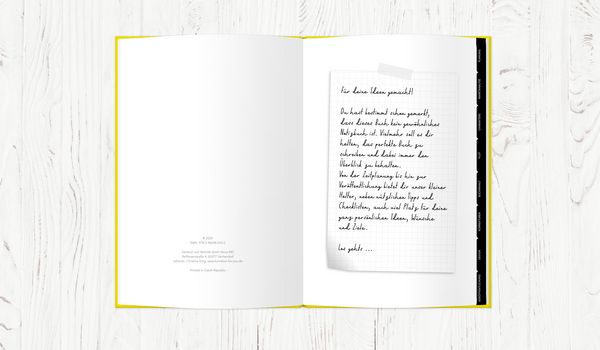 © 2020
Printed in Czech Republic
Für deine Ideen gemacht!
Du hast bestimmt schon gemerkt,
dass dieses Buch kein gewöhnliches
Notizbuch ist. Vielmehr soll es dir
helfen, das perfekte Buch zu
schreiben und dabei immer den
Überblick zu behalten.
Von der Zeitplanung bis hin zur
Veröffentlichung bietet dir unser kleiner
Helfer, neben nützlichen Tipps und
Checklisten, auch viel Platz für deine
ganz persönlichen Ideen, Wünsche
und Ziele.
Los gehts ...